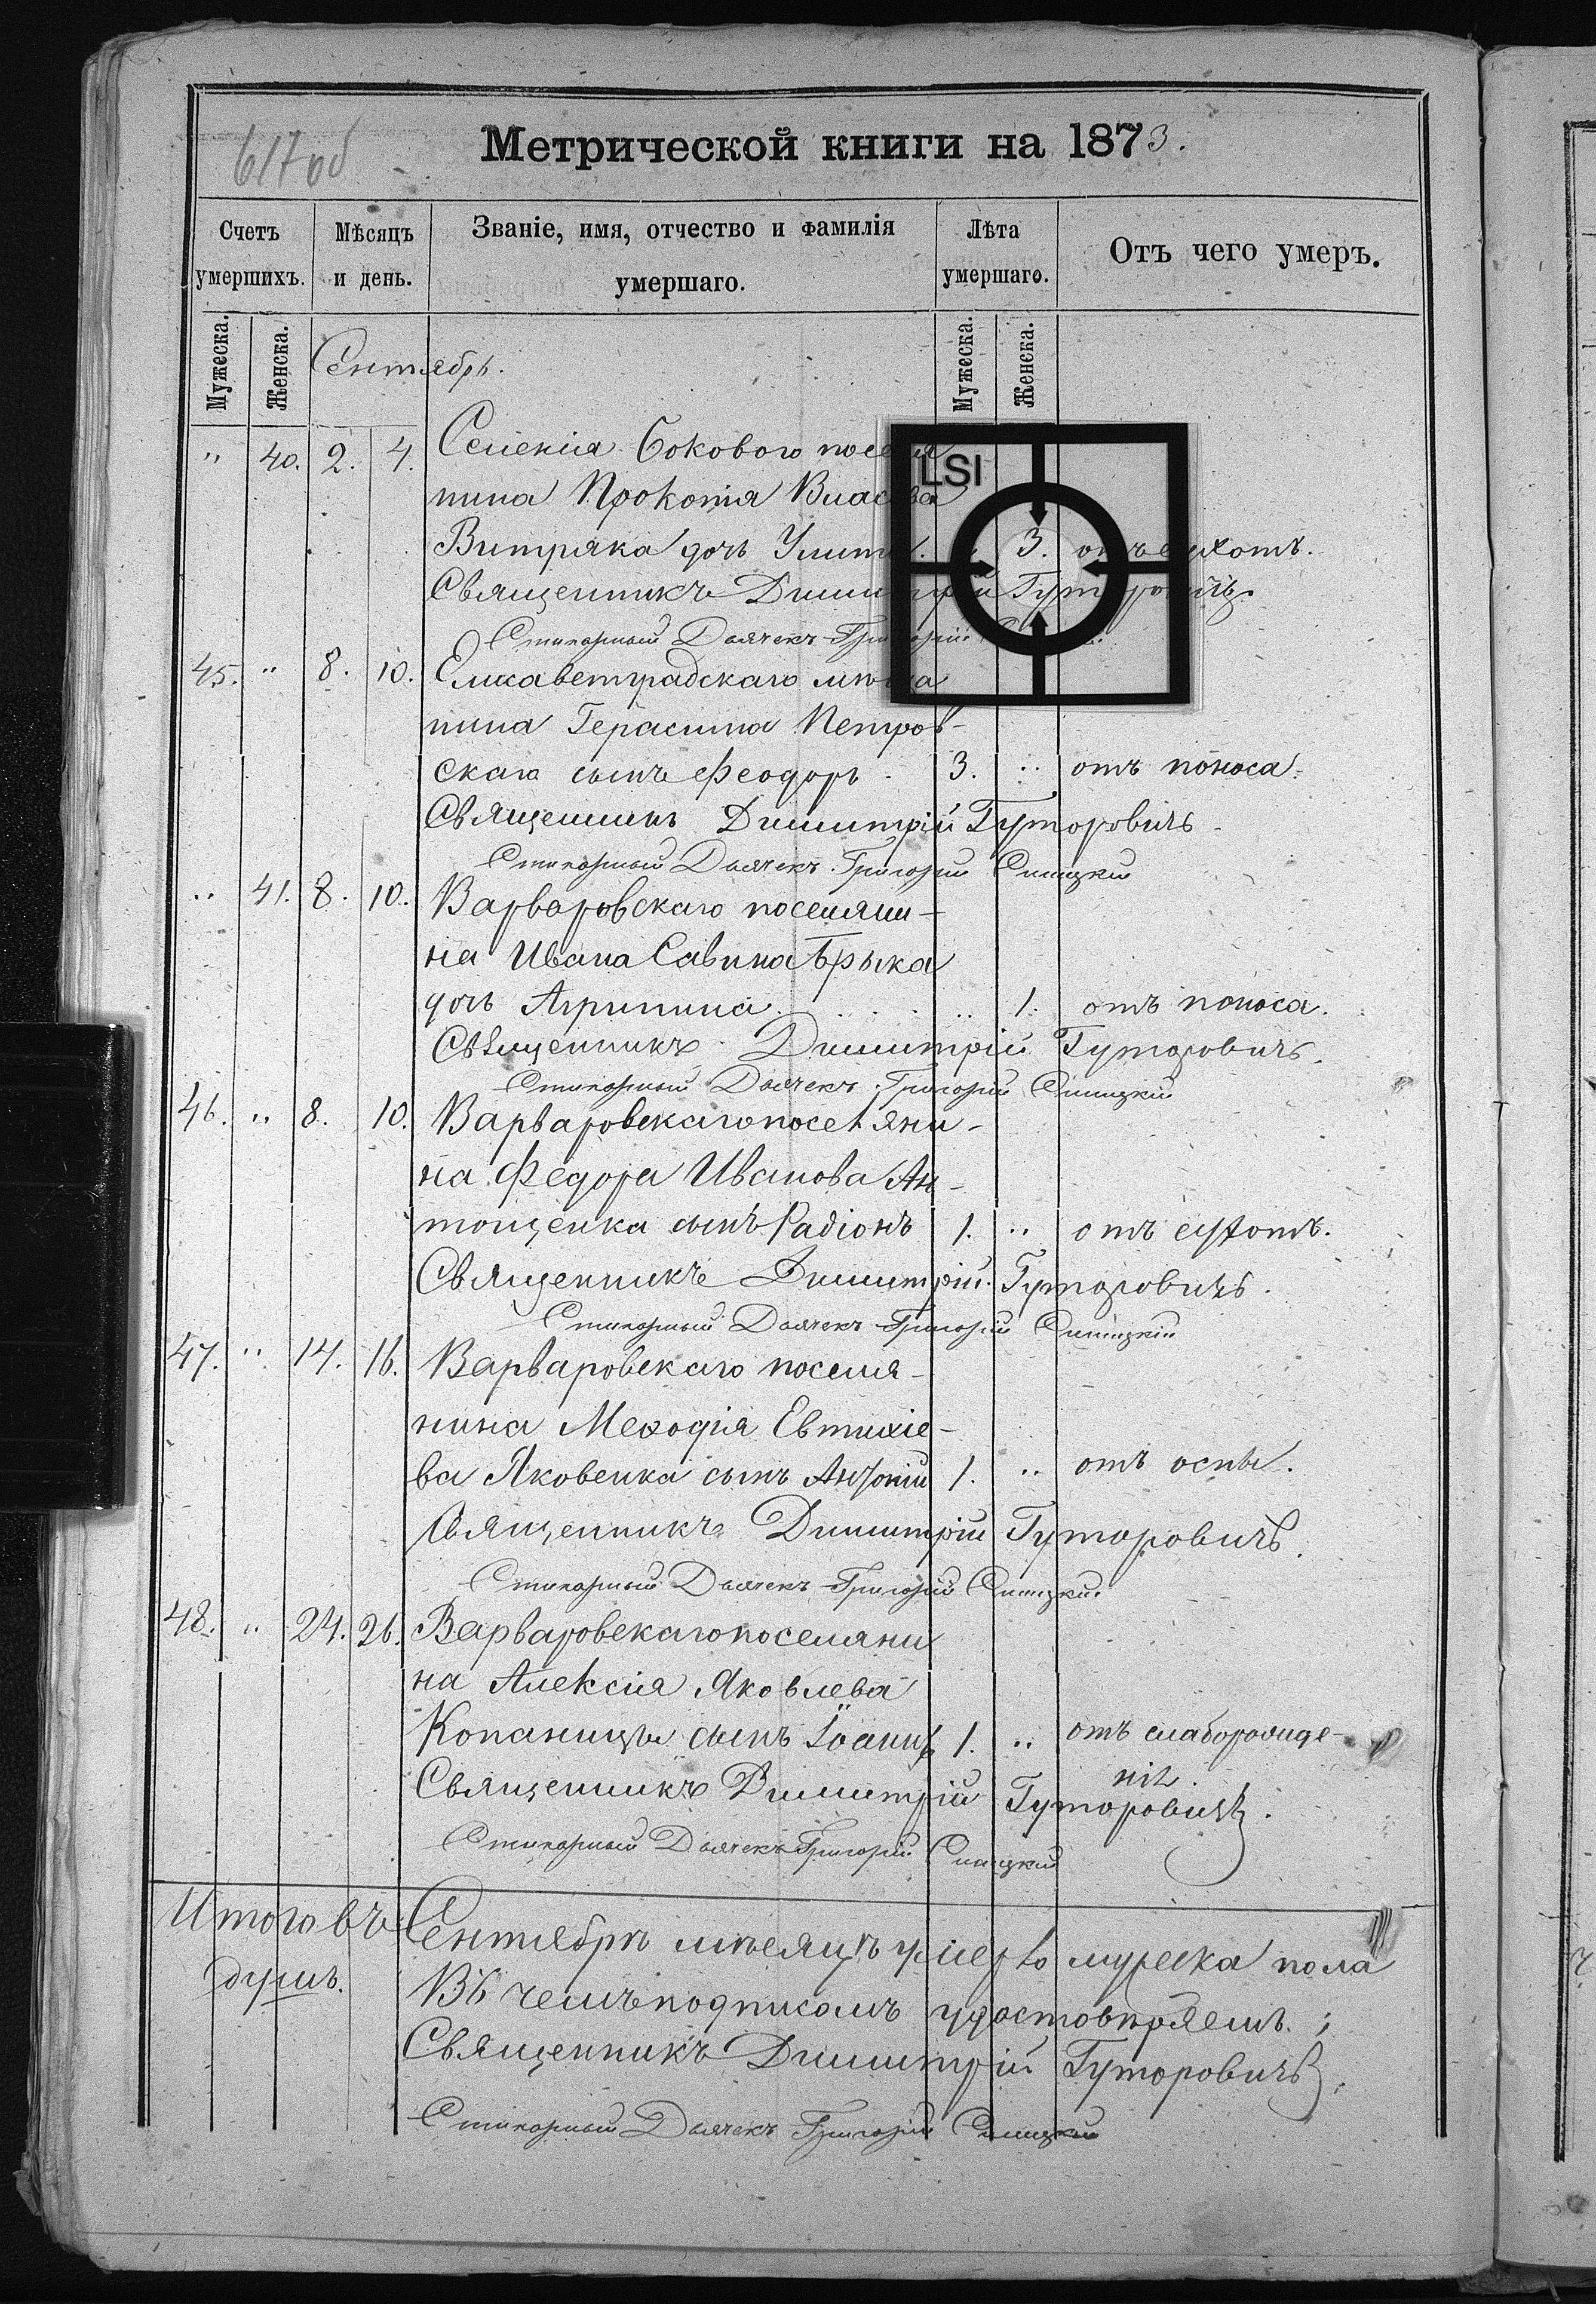 617 об
Метрической книги на 1873.
Счетъ умершихъ.
Мѣсяцъ и день.
Званіе, имя, отчество и фамилія умершаго.
Лѣта умершаго.
Отъ чего умеръ.
Мужеска. Женска. Мужеска. Женска.
Сентябрь.
LSI
" 40. 2. 4. Селенія Бокового поселя
нина Прокопія Власова
Витряка дочь Улита. 3. отъ сухотъ.
Священникъ Димитрій Гуторовичъ.
Стихарный Дьячекъ Григорій
45. " 8. 10. Елисаветградскаго мѣща
нина Герасима Петров-
скаго сынъ Феодоръ. 3. " отъ поноса.
Священникъ Димитрій Гуторовичъ.
Стихарный Дьячекъ Григорій
" 41. 8. 10. Варваровскаго поселяни-
на Ивана Савина Брыка
дочь Агрипина. " 1. отъ поноса.
Священникъ Димитрій Гуторовичъ.
Стихарный Дьячекъ Григорій
46. " 8. 10. Варваровскаго поселяни-
на Федора Иванова Ан-
тощенка сынъ Радіонъ 1. " отъ сухотъ.
Священникъ Димитрій Гуторовичъ.
Стихарный Дьячекъ Григорій
47. " 14. 16. Варваровскаго поселя-
нина Меѳодія Евтихіе-
ва Яковенка сынъ Антоній 1. " отъ оспы.
Священникъ Димитрій Гуторовичъ.
Стихарный Дьячекъ Григорій
48. " 24. 26. Варваровскаго поселяни
на Алексія Яковлева
Копаницы сынъ Іоаннъ 1. " отъ слаборожде-
нія.
Священникъ Димитрій Гуторовичъ.
Стихарный Дьячекъ Григорій
Итого въ Сентябрѣ мѣсяцѣ умерло мужеска пола
душъ.
Въ чемъ подписомъ удостовѣряемъ:
Священникъ Димитрій Гуторовичъ.
Стихарный Дьячекъ Григорій